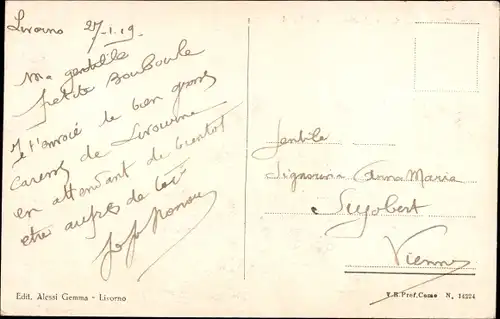 Livorno 27-1.19.
Ma gentille
petite Bouboule
Je t'envoie le bien grosses
caresses de Livourne
en attendant de bientot
etre aupres de toi
Gentile
Signorina Anna Maria
Vienne
Edit. Alessi Gemma - Livorno
V. E. Pref. Como N, 14374